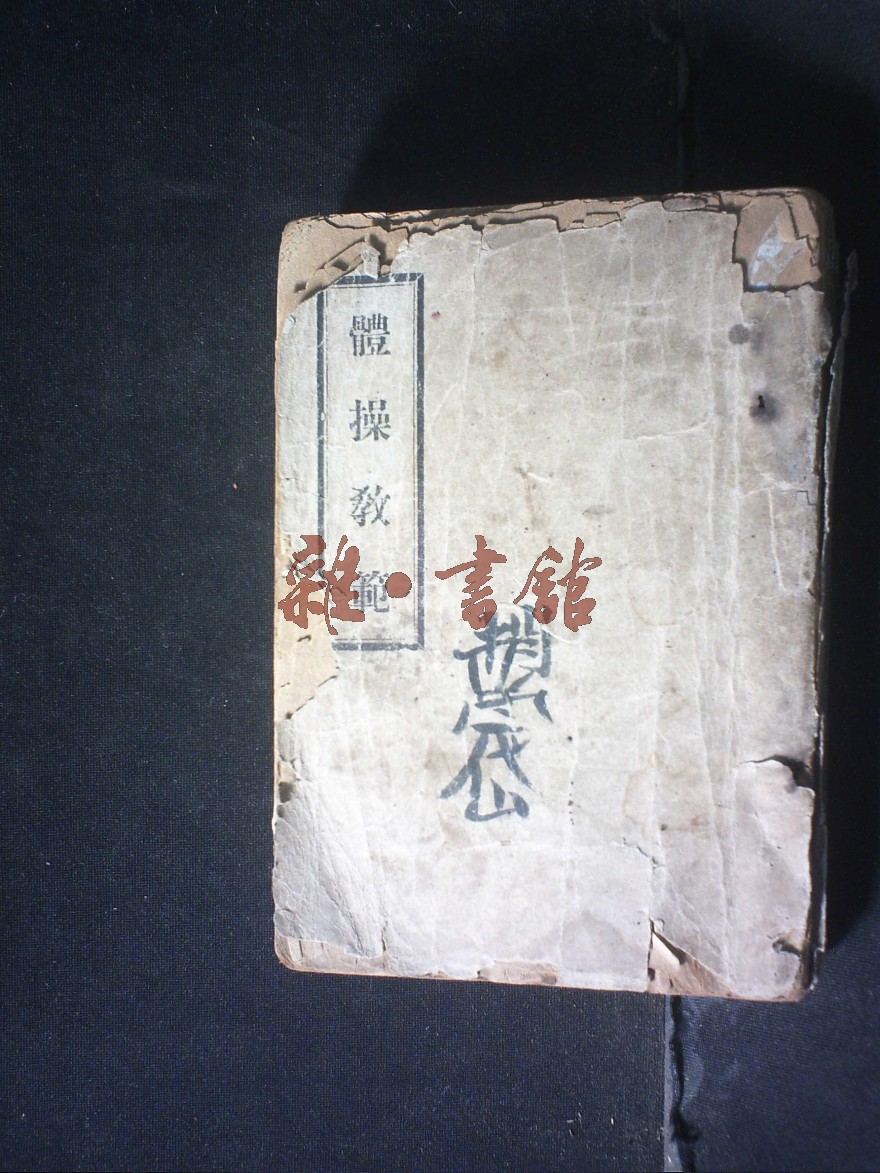 體操教範
雜·書館